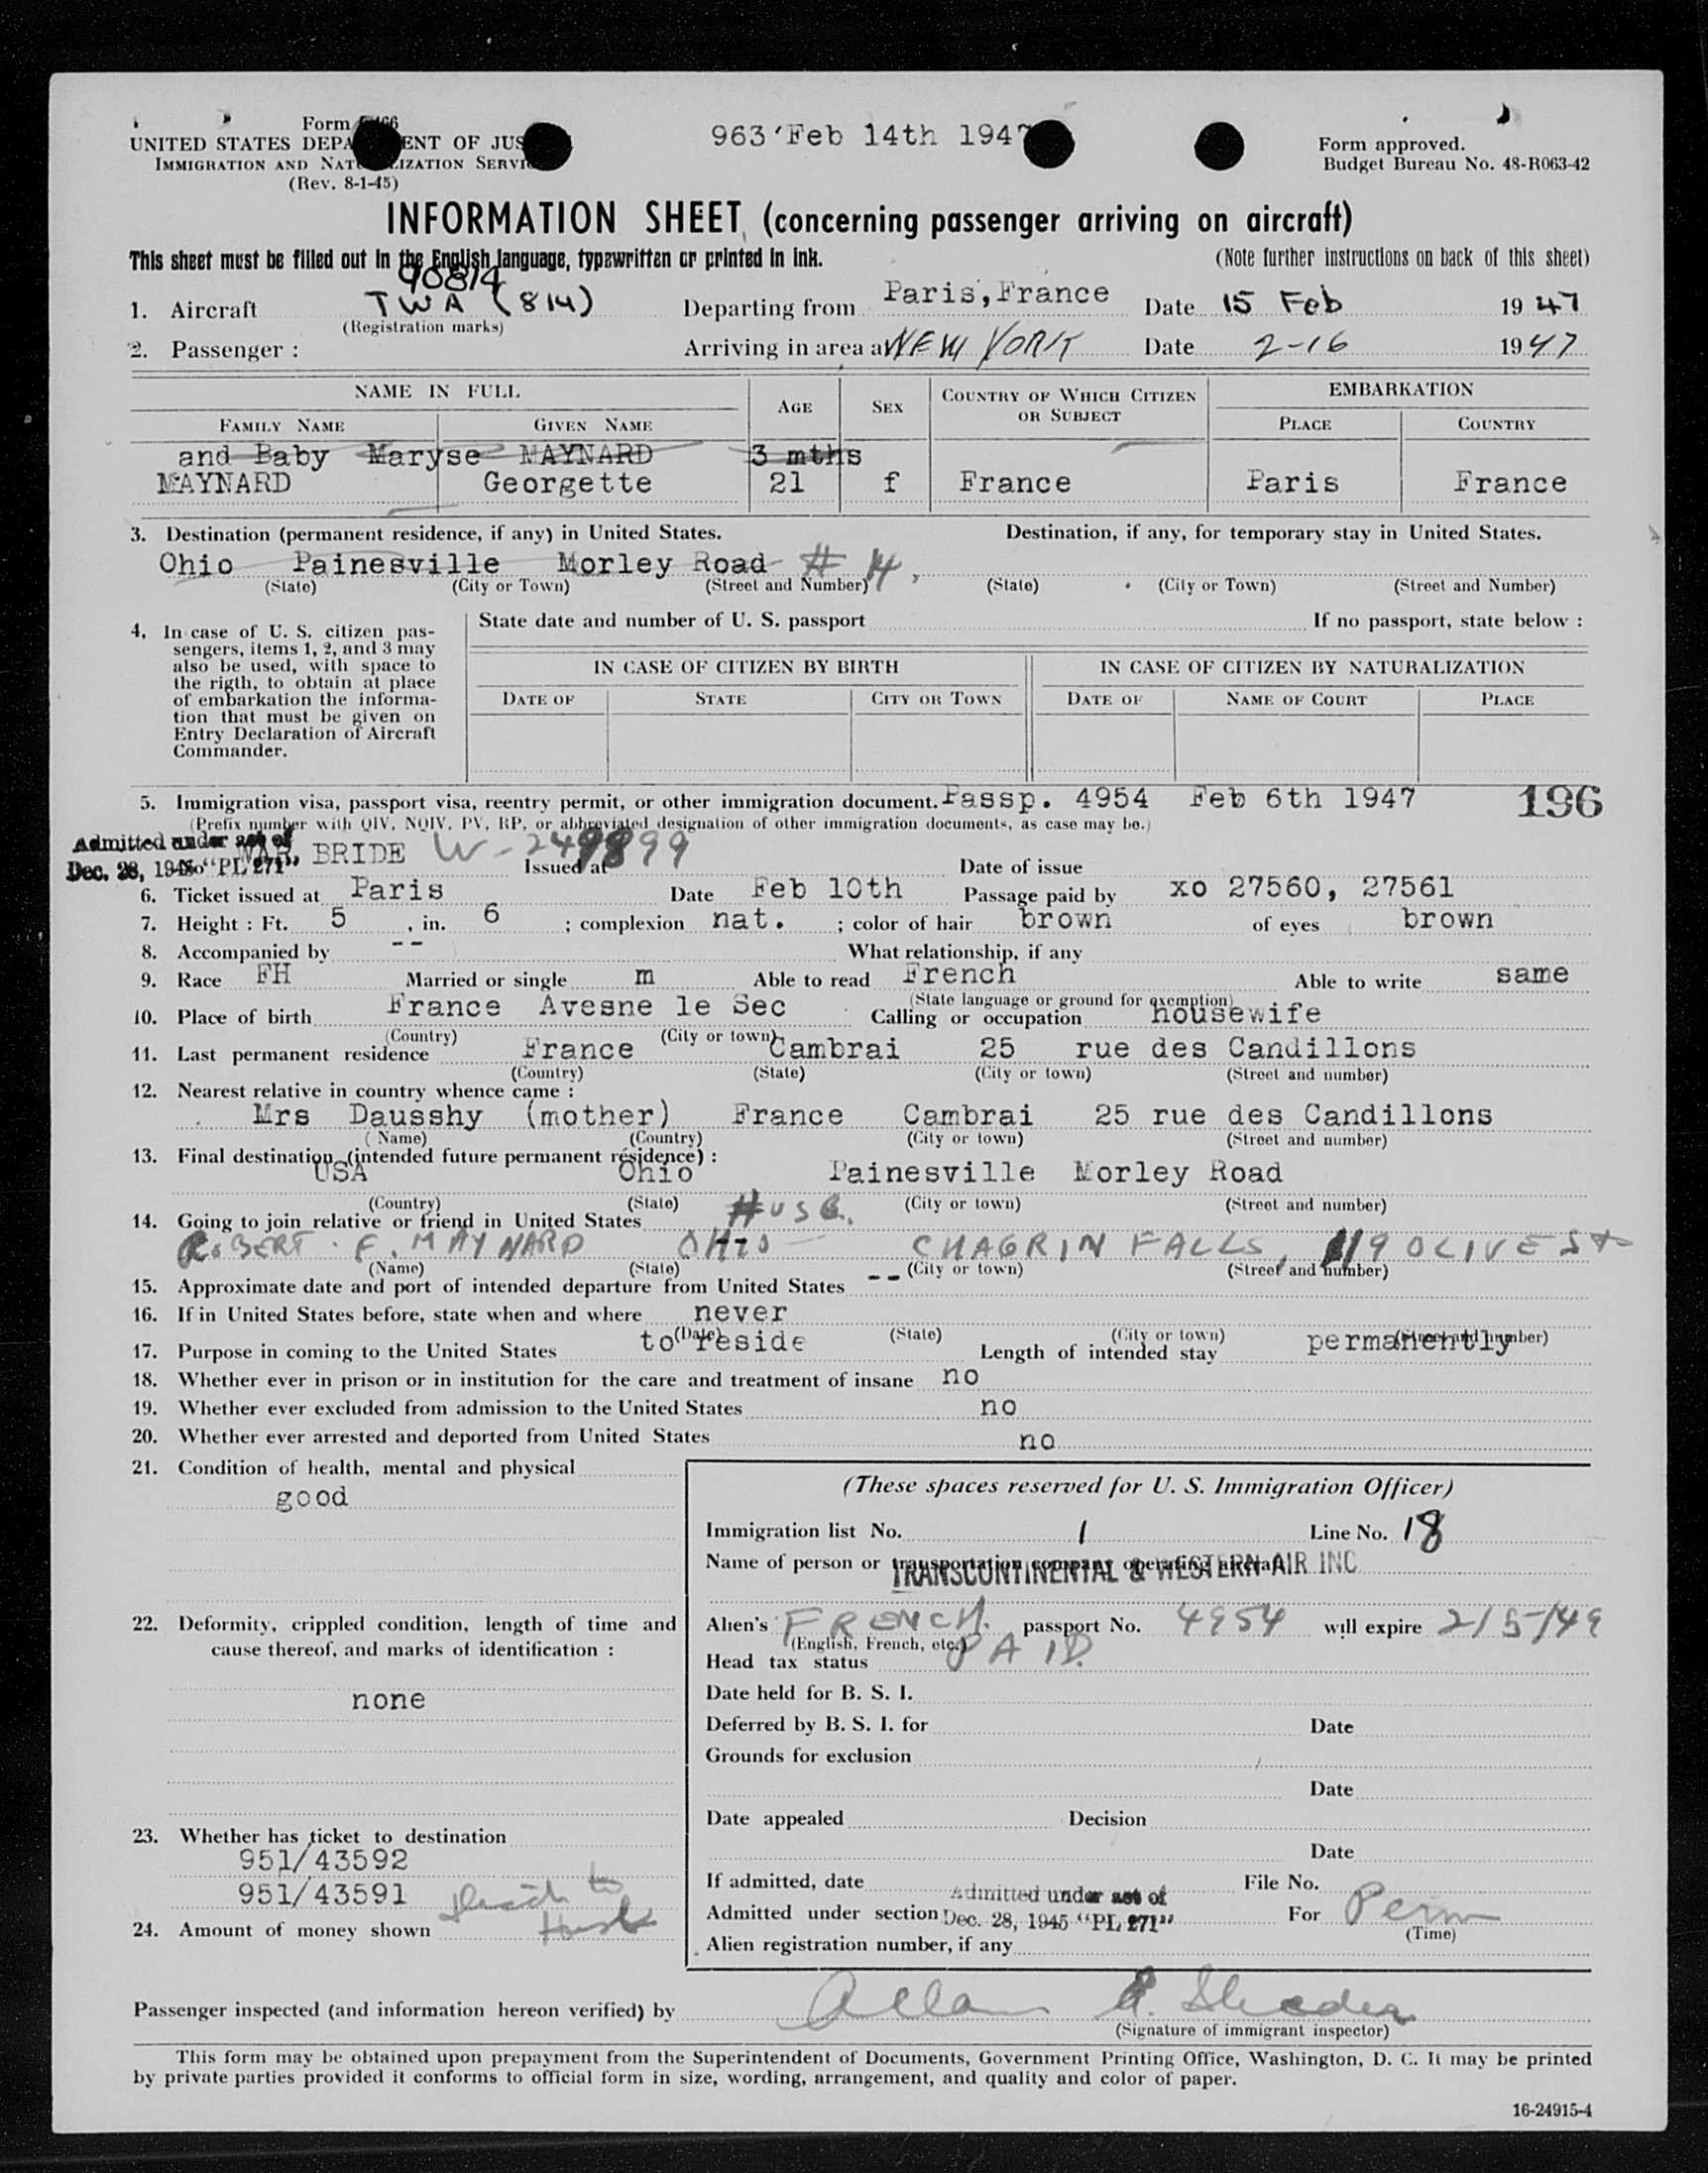 Form
963 Feb 14th 194
Form approved.
UNITED STATES DEPA ENT OF JUS
IMMIGRATION AND NAT IZATION SERVI
Budget Bureau No. 48-R063-42
(Rev. 8-1-45)
INFORMATION SHEET (concerning passenger arriving on aircraft)
This sheet must be filled out in the English language, typewritten or printed in ink. (Note further instructions on back of this sheet)
90814
1. Aircraft TWA (814) Departing from Paris, France Date 15 Feb 1947
(Registration marks)
2. Passenger : Arriving in area at NEW YORK Date 2-16 1947
NAME IN FULL AGE SEX COUNTRY OF WHICH CITIZEN OR SUBJECT EMBARKATION
FAMILY NAME GIVEN NAME PLACE COUNTRY
and Baby Maryse MAYNARD 3 mths
MAYNARD Georgette 21 f France Paris France
3. Destination (permanent residence, if any) in United States. Destination, if any, for temporary stay in United States.
Ohio Painesville Morley Road # 14,
(State) (City or Town) (Street and Number) (State) (City or Town) (Street and Number)
4. In case of U. S. citizen pas-
sengers, items 1, 2, and 3 may
also be used, with space to
the rigth, to obtain at place
of embarkation the informa-
tion that must be given on
Entry Declaration of Aircraft
Commander.
State date and number of U. S. passport If no passport, state below :
IN CASE OF CITIZEN BY BIRTH IN CASE OF CITIZEN BY NATURALIZATION
DATE OF STATE CITY OR TOWN DATE OF NAME OF COURT PLACE
5. Immigration visa, passport visa, reentry permit, or other immigration document. Passp. 4954 Feb 6th 1947 196
(Prefix number with QIV, NQIV, PV, RP, or abbreviated designation of other immigration documents, as case may be.)
Admitted under act of
Dec. 28, 1945 "PL 271"
No WAR BRIDE W-249899 Issued at Date of issue
6. Ticket issued at Paris Date Feb 10th Passage paid by xo 27560, 27561
7. Height : Ft. 5 , in. 6 ; complexion nat. ; color of hair brown of eyes brown
8. Accompanied by -- What relationship, if any
9. Race FH Married or single m Able to read French Able to write same
(State language or ground for exemption)
10. Place of birth France Avesne le Sec Calling or occupation housewife
(Country) (City or town)
11. Last permanent residence France Cambrai 25 rue des Candillons
(Country) (State) (City or town) (Street and number)
12. Nearest relative in country whence came :
Mrs Dausshy (mother) France Cambrai 25 rue des Candillons
(Name) (Country) (City or town) (Street and number)
13. Final destination (intended future permanent résidence) :
USA Ohio Painesville Morley Road
(Country) (State) (City or town) (Street and number)
14. Going to join relative or friend in United States HUSB.
ROBERT F. MAYNARD OHIO CHAGRIN FALLS, 119 OLIVE St
(Name) (State) (City or town) (Street and number)
15. Approximate date and port of intended departure from United States --
16. If in United States before, state when and where never
(Date) (State) (City or town) (Street and number)
17. Purpose in coming to the United States to reside Length of intended stay permanently
18. Whether ever in prison or in institution for the care and treatment of insane no
19. Whether ever excluded from admission to the United States no
20. Whether ever arrested and deported from United States no
21. Condition of health, mental and physical
good
22. Deformity, crippled condition, length of time and
cause thereof, and marks of identification :
none
23. Whether has ticket to destination
951/43592
951/43591
24. Amount of money shown
(These spaces reserved for U. S. Immigration Officer)
Immigration list No. 1 Line No. 18
Name of person or transportation company operating aircraft
TRANSCONTINENTAL & WESTERN AIR INC
Alien's FRENCH. passport No. 4954 will expire 2/5/49
(English, French, etc.)
Head tax status PAID.
Date held for B. S. I.
Deferred by B. S. I. for Date
Grounds for exclusion
Date
Date appealed Decision
Date
If admitted, date File No.
Admitted under act of
Admitted under section Dec. 28, 1945 "PL 271" For Perm
(Time)
Alien registration number, if any
Passenger inspected (and information hereon verified) by
(Signature of immigrant inspector)
This form may be obtained upon prepayment from the Superintendent of Documents, Government Printing Office, Washington, D. C. It may be printed
by private parties provided it conforms to official form in size, wording, arrangement, and quality and color of paper.
16-24915-4